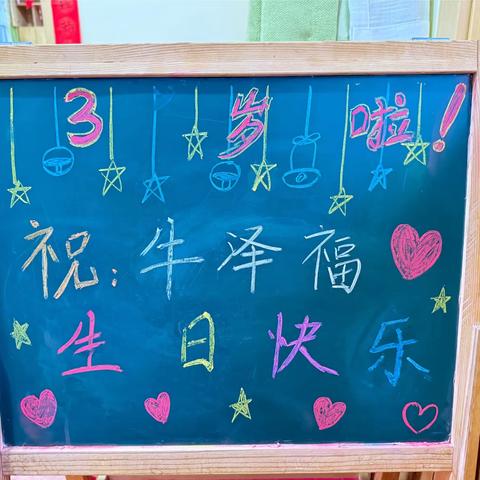 3岁啦！
祝：牛泽福
生日快乐